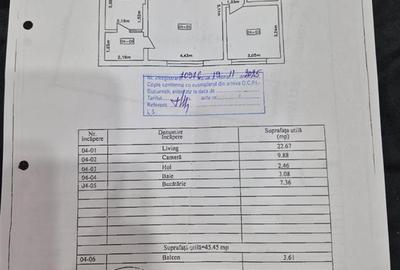 2,19m
1,53m
04-05
04-04
04-01
04-02
1,05m
3,24m
2,19m
4,43m
3,05m
Nr. înregistrare 10916 din 19 11 2025
Copie conformă cu exemplarul din arhiva O.C.P.I.
București, eliberată la data de
Tariful acte nr.
Referent
L.S.
Nr. încăpere
Denumire încăpere
Suprafața utilă (mp)
04-01 Living 22.67
04-02 Cameră 9.88
04-03 Hol 2.46
04-04 Baie 3.08
04-05 Bucătărie 7.36
Suprafață utilă=45.45 mp
04-06 Balcon 3.61